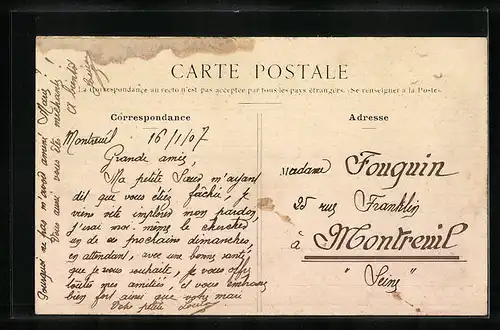 CARTE POSTALE
La Correspondance au recto n'est pas acceptée par tous les pays étrangers. (Se renseigner à la Poste)
Correspondance
Adresse
Montreuil 16/1/07
Grande amie,
Ma petite Sœur m'ayant
dit que vous étiez fâchée, je
viens vite implorer mon pardon,
j'irai moi-même le chercher
un de ces prochains dimanches,
en attendant, avec une bonne santé
que je vous souhaite, je vous offre
toutes mes amitiés, et vous embrasse
bien fort ainsi que votre mari
Votre petite
Pourquoi ne pas m'avoir amené Marie!
Vous aussi vous été méchante!
A bientôt
Madame Fouquin
25 rue Franklin
à Montreuil
"Seine"